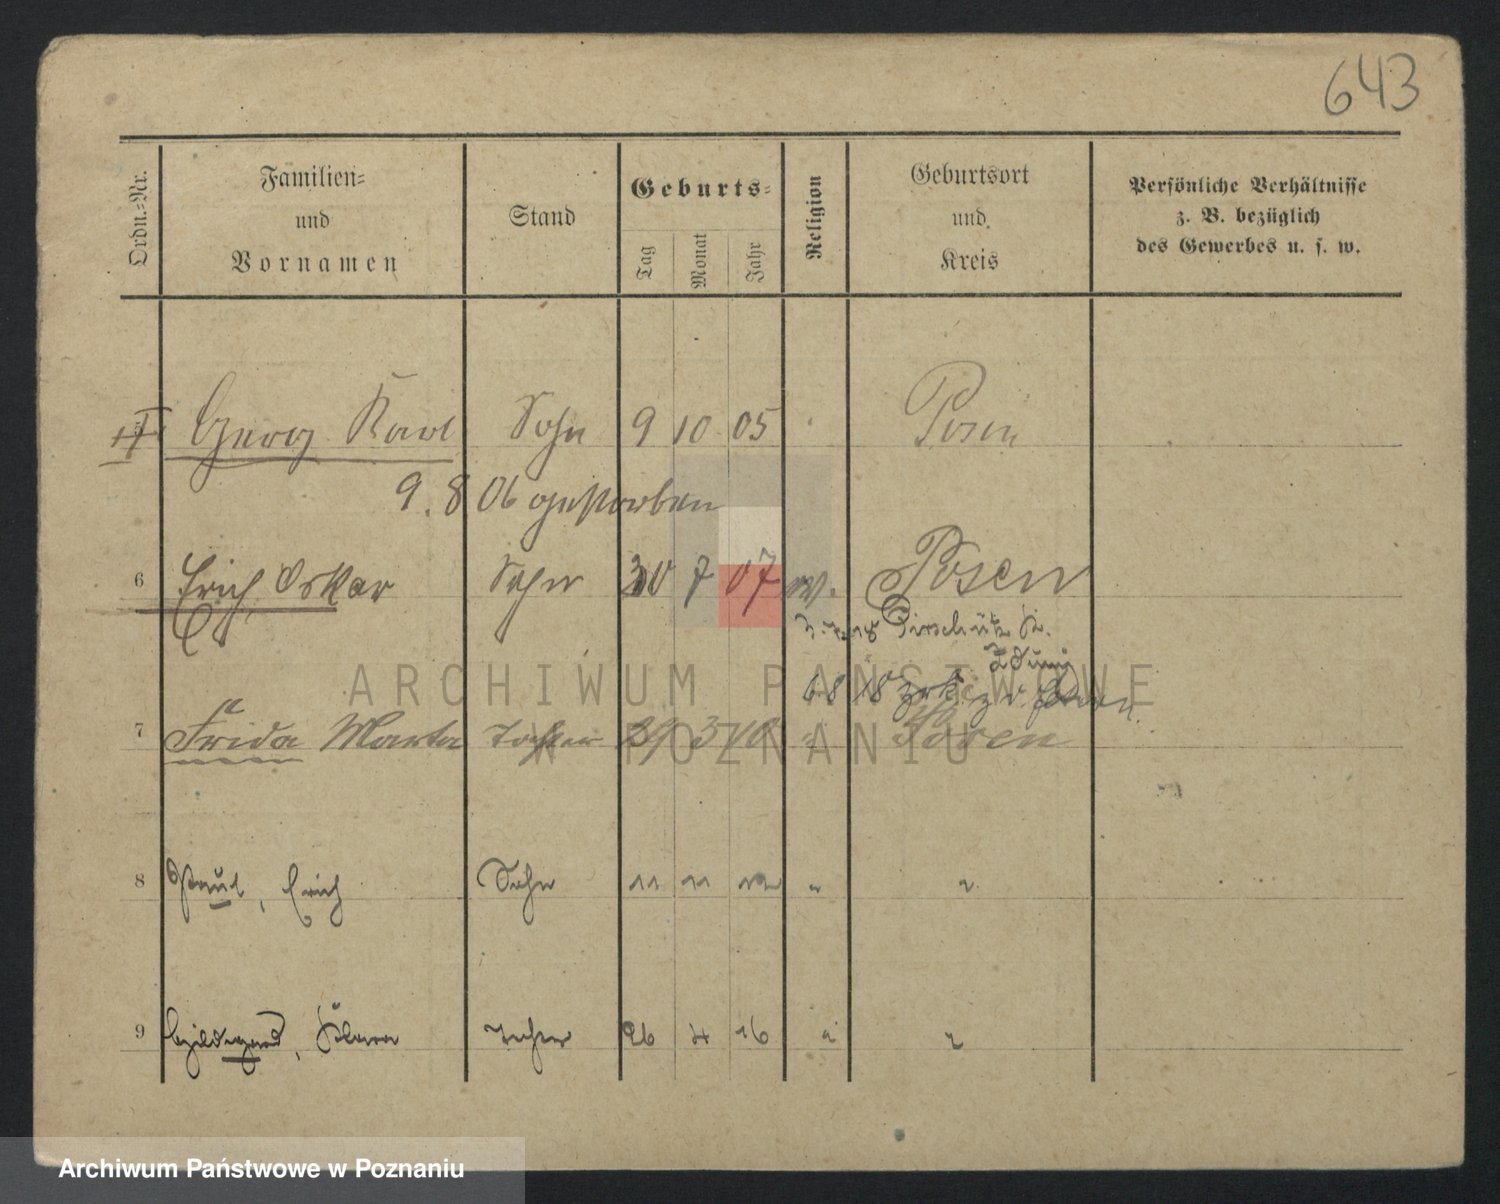 643
Ordn.-Nr.
Familien-
und
Vornamen
Stand
Geburts-
Tag
Monat
Jahr
Religion
Geburtsort
und
Kreis
Persönliche Verhältnisse
z. B. bezüglich
des Gewerbes u. s. w.
5 Georg Karl Sohn 9 10 05 Posen
9. 8 06 gestorben
6 Erich Oskar Sohn 30 7 07 Posen
6.8 18 zrk. z. d.
7 Frida Marta Tochter 29 3 10 " Posen
8 Paul, Erich Sohn 11 11 12 " "
9 Hildegard, Klara Tochter 26 4 16 " "
ARCHIWUM PAŃSTWOWE
W POZNANIU
Archiwum Państwowe w Poznaniu